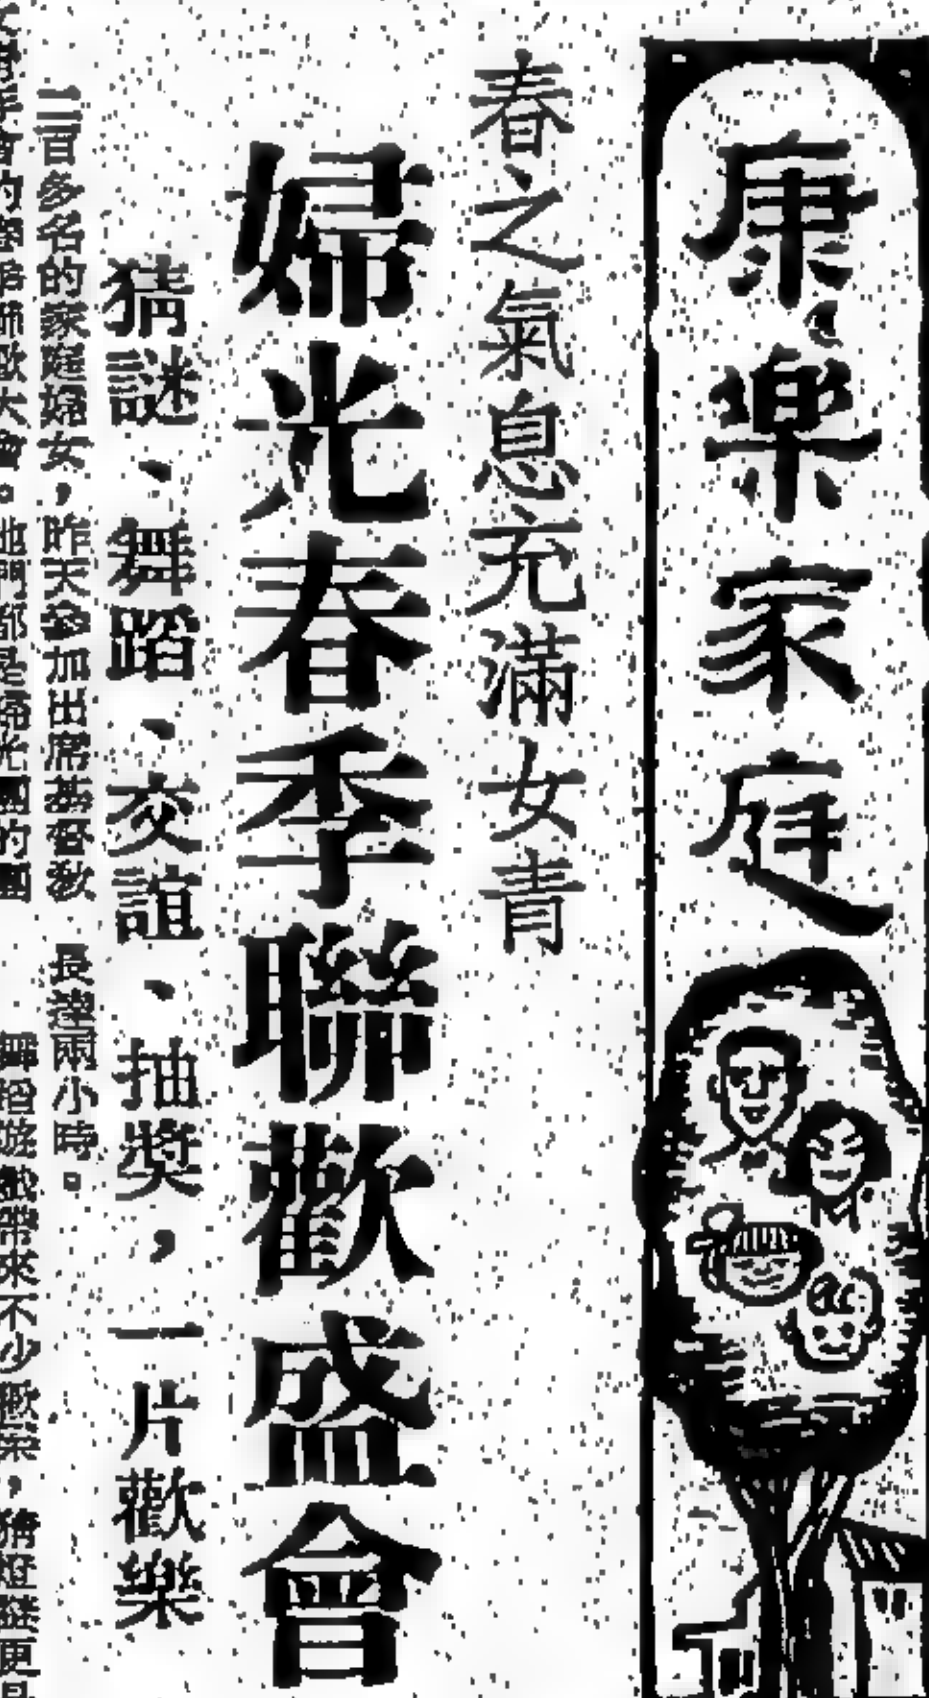 康樂家庭
春之氣息充滿女青
婦光春季聯歡盛會
猜謎、舞蹈、交誼、抽獎，一片歡樂
二百多名的家庭婦女，昨天參加出席基督教
女青年會的婦光聯歡大會。她們都是婦光團的團
長達兩小時。
舞蹈遊戲帶來不少歡樂，猜燈謎更是